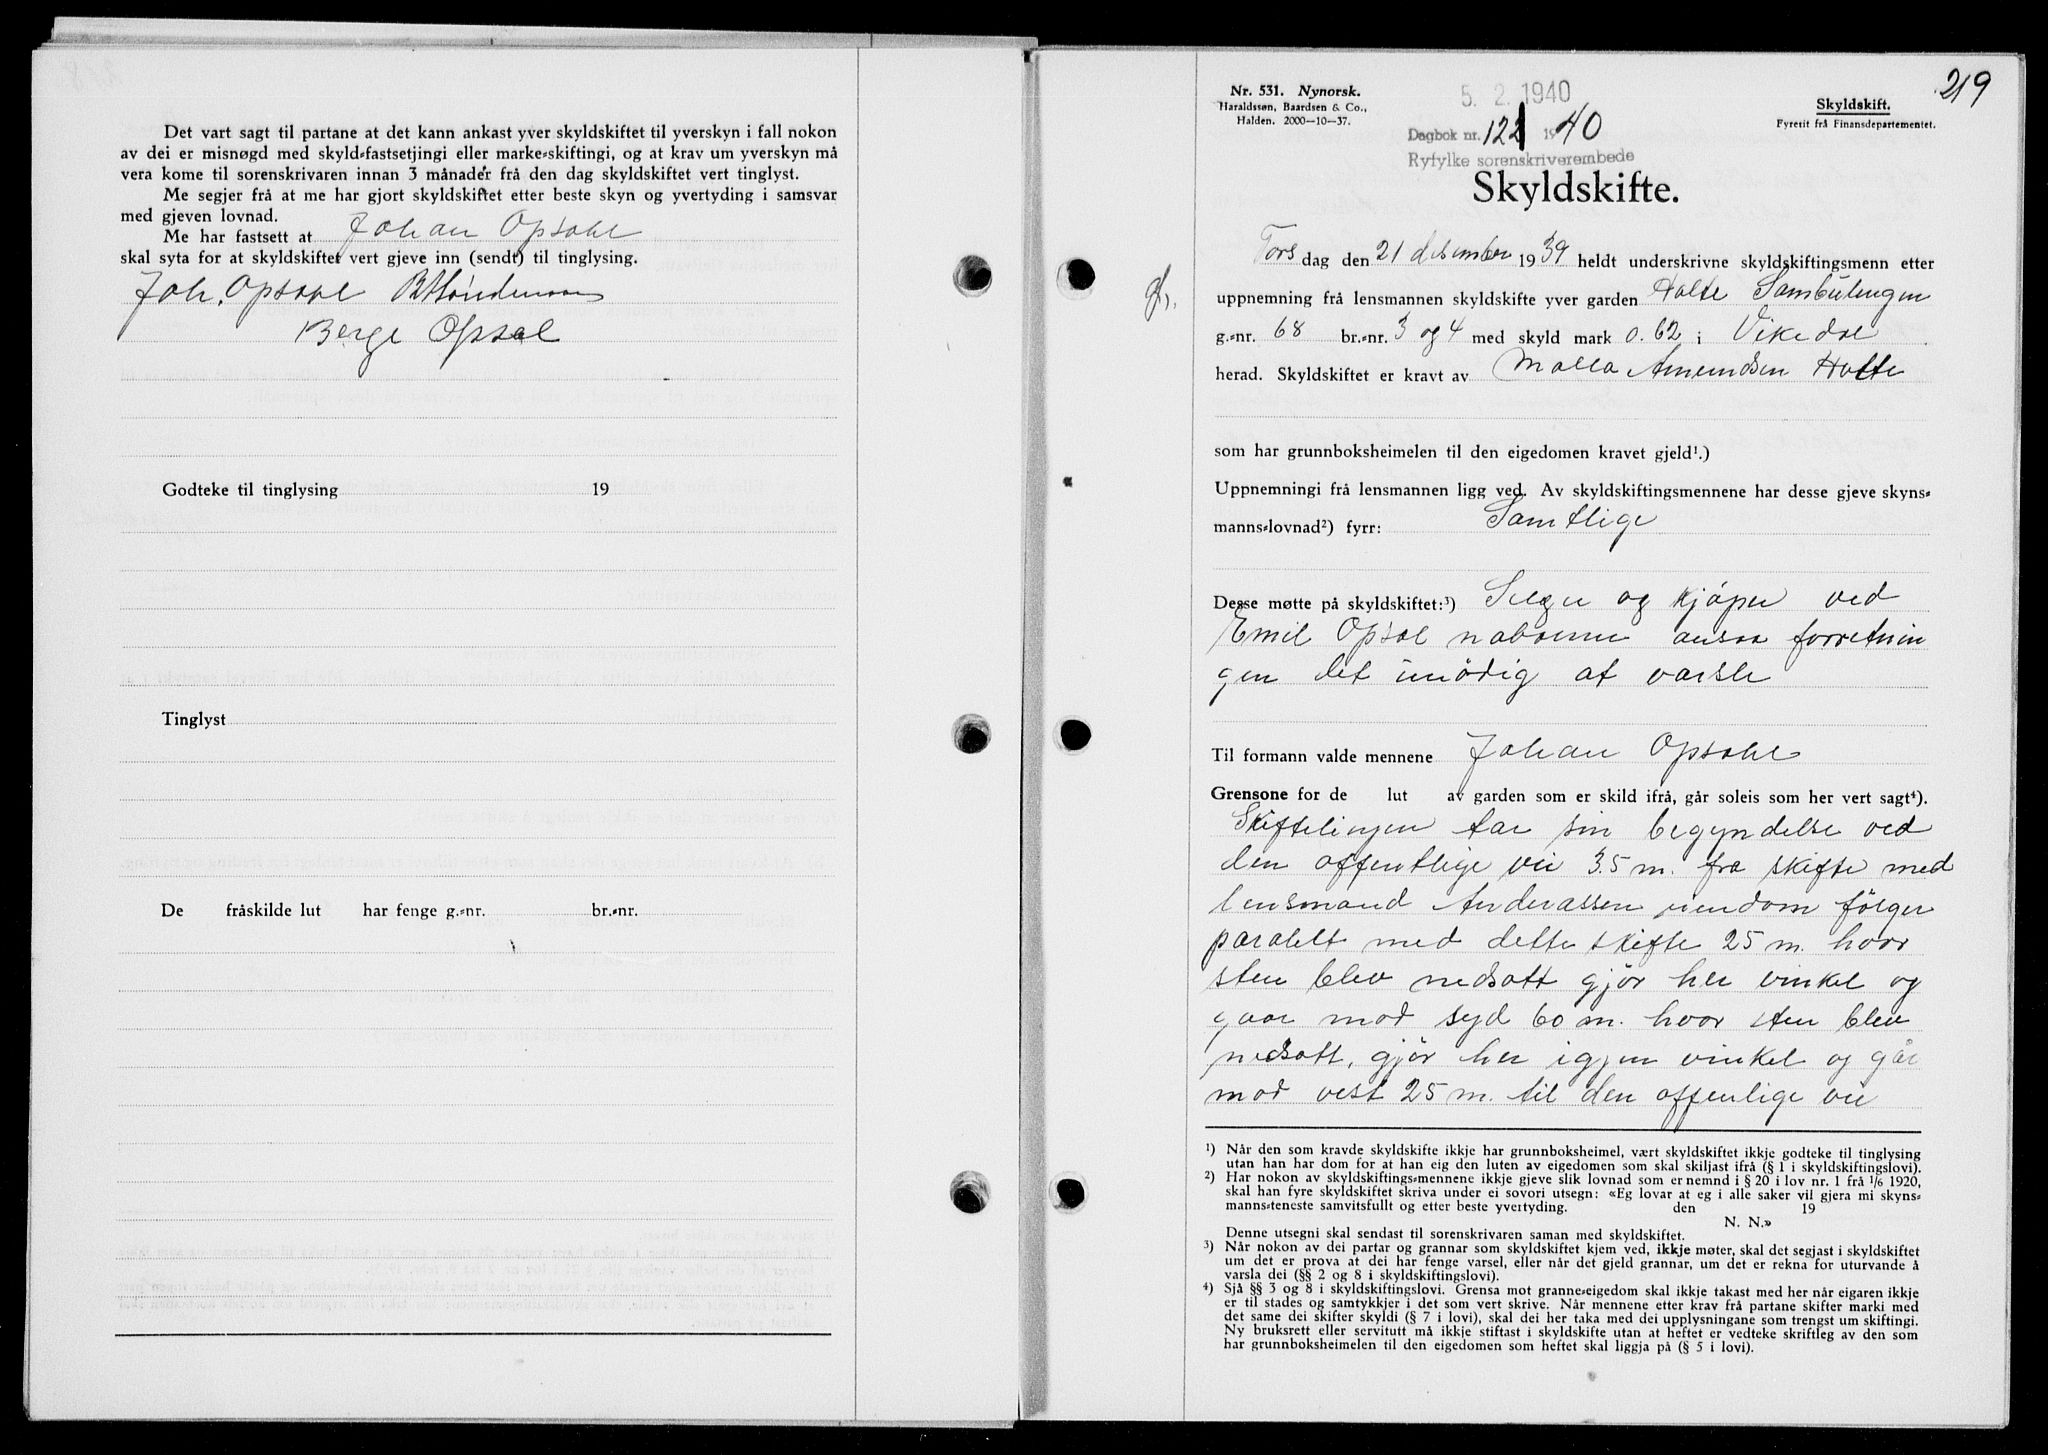 Det vart sagt til partane at det kann ankast yver skyldskiftet til yverskyn i fall nokon
av dei er misnøgd med skyld-fastsetjingi eller marke-skiftingi, og at krav um yverskyn må
vera kome til sorenskrivaren innan 3 månader frå den dag skyldskiftet vert tinglyst.
Me segjer frå at me har gjort skyldskiftet etter beste skyn og yvertyding i samsvar
med gjeven lovnad.
Me har fastsett at Johan Opsahl
skal syta for at skyldskiftet vert gjeve inn (sendt) til tinglysing.
Joh. Opsahl
Berge Opsal
Godteke til tinglysing 19
Tinglyst
De fråskilde lut har fenge g.-nr. br.-nr.
219
Nr. 531. Nynorsk.
Haraldssøn, Baardsen & Co.,
Halden. 2000—10—37.
5. 2. 1940
Dagbok nr. 122 1940
Ryfylke sorenskriverembede
Skyldskift.
Fyrerit frå Finansdepartementet.
Skyldskifte.
Torsdag den 21 desember 1939 heldt underskrivne skyldskiftingsmenn etter
uppnemning frå lensmannen skyldskifte yver garden Holte
g.-nr. 68 br.-nr. 3 og 4 med skyld mark 0.62 i Vikedal
herad. Skyldskiftet er kravt av Malla Amundsen Holte
som har grunnboksheimelen til den eigedomen kravet gjeld¹.)
Uppnemningi frå lensmannen ligg ved. Av skyldskiftingsmennene har desse gjeve skyns-
manns-lovnad²) fyrr: Samtlige
Desse møtte på skyldskiftet:³) Selger og kjöper ved
Emil Opsal naboerne ansaa forretnin
gen det unödig at varsle
Til formann valde mennene Johan Opsahl
Grensone for de lut av garden som er skild ifrå, går soleis som her vert sagt⁴).
Skiftelinjen tar sin begyndelse ved
den offentlige vei 3.5 m. fra skifte med
lensmand Andreassen eiendom fölger
paralelt med dette skifte 25 m. hvor
sten blev nedsatt gjör her vinkel og
gaar mod syd 60 m. hvor sten blev
nedsatt, gjör her igjen vinkel og går
mod vest 25 m. til den offenlige vei
¹) Når den som kravde skyldskifte ikkje har grunnboksheimel, vært skyldskiftet ikkje godteke til tinglysing
utan han har dom for at han eig den luten av eigedomen som skal skiljast ifrå (§ 1 i skyldskiftingslovi).
²) Har nokon av skyldskiftings-mennene ikkje gjeve slik lovnad som er nemnd i § 20 i lov nr. 1 frå 1/6 1920,
skal han fyre skyldskiftet skriva under ei sovori utsegn: «Eg lovar at eg i alle saker vil gjera mi skyns-
manns-teneste samvitsfullt og etter beste yvertyding. den 19
N. N.»
Denne utsegni skal sendast til sorenskrivaren saman med skyldskiftet.
³) Når nokon av dei partar og grannar som skyldskiftet kjem ved, ikkje møter, skal det segjast i skyldskiftet
um det er prova at dei har fenge varsel, eller når det gjeld grannar, um det er rekna for uturvande å
varsla dei (§§ 2 og 8 i skyldskiftingslovi).
⁴) Sjå §§ 3 og 8 i skyldskiftingslovi. Grensa mot granne-eigedom skal ikkje takast med her når eigaren ikkje
er til stades og samtykkjer i det som vert skrive. Når mennene etter krav frå partane skifter marki med
det same dei skifter skyldi (§ 7 i lovi), skal dei her taka med dei upplysningane som trengst um skiftingi.
Ny bruksrett eller servitutt må ikkje stiftast i skyldskifte utan at heftet er vedteke skriftleg av den som
har grunnboksheimelen til den eigedomen som heftet skal liggja på (§ 5 i lovi).